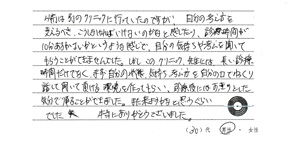 以前は別のクリニックに行っていたのですが、自分の考え方を
変えるべき、こうしなければいけないのかなと感じたり、診療時間が
10分あるかないかという感じで、自分の気持ちや考えを聞いて
もらうことができませんでした。しかし、このクリニック、先生には、長い診療
時間だけでなく、まず自分の状態、気持ち、考え方を自分の口でゆっくり
話して聞いて頂ける環境を作ってもらい、診療後には すっきりした
気分で帰ることができました。また来れたらなと思うくらい
でした 本当にありがとうございました。
(30)代 男性・女性